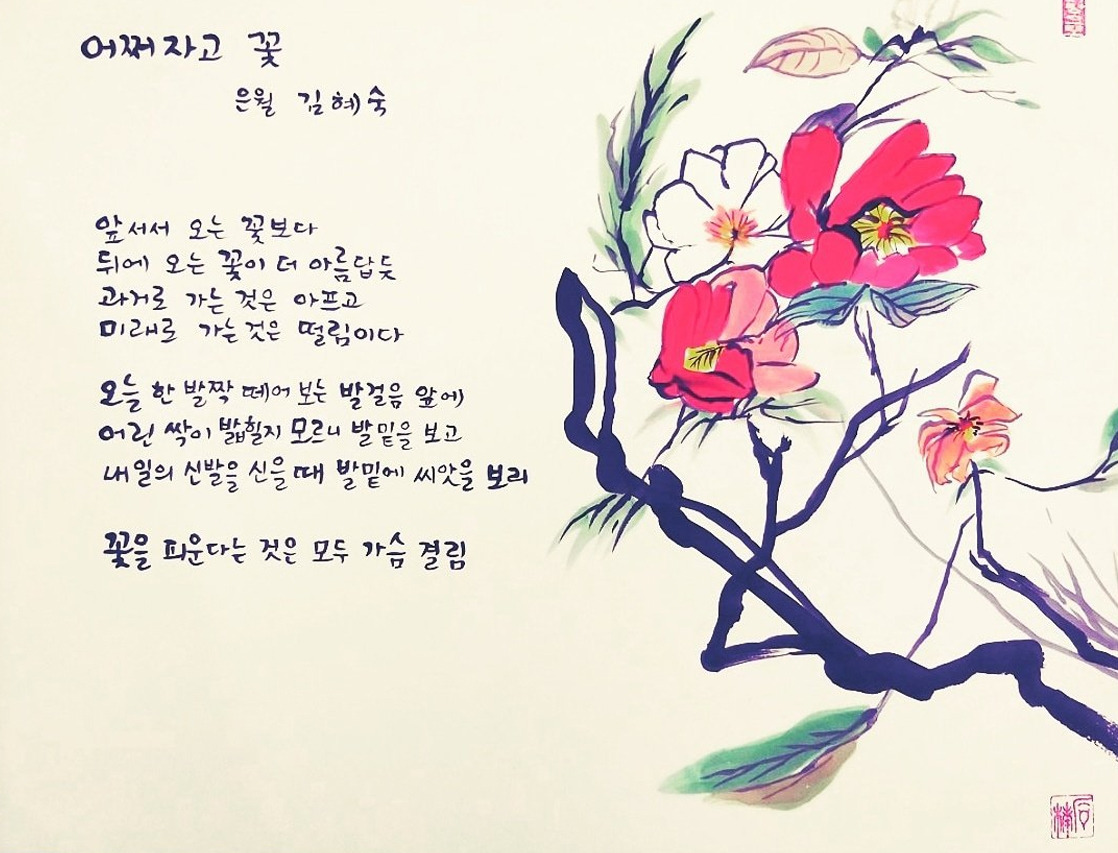 어쩌자고 꽃
은월 김혜숙
앞서서 오는 꽃보다
뒤에 오는 꽃이 더 아름답듯
과거로 가는 것은 아프고
미래로 가는 것은 떨림이다
오늘 한 발짝 떼어 놓는 발걸음 앞에
어린 싹이 밟힐지 모르니 발밑을 보고
내일의 신발을 신을 때 발밑에 씨앗을 보리
꽃을 피운다는 것은 모두 가슴 결림